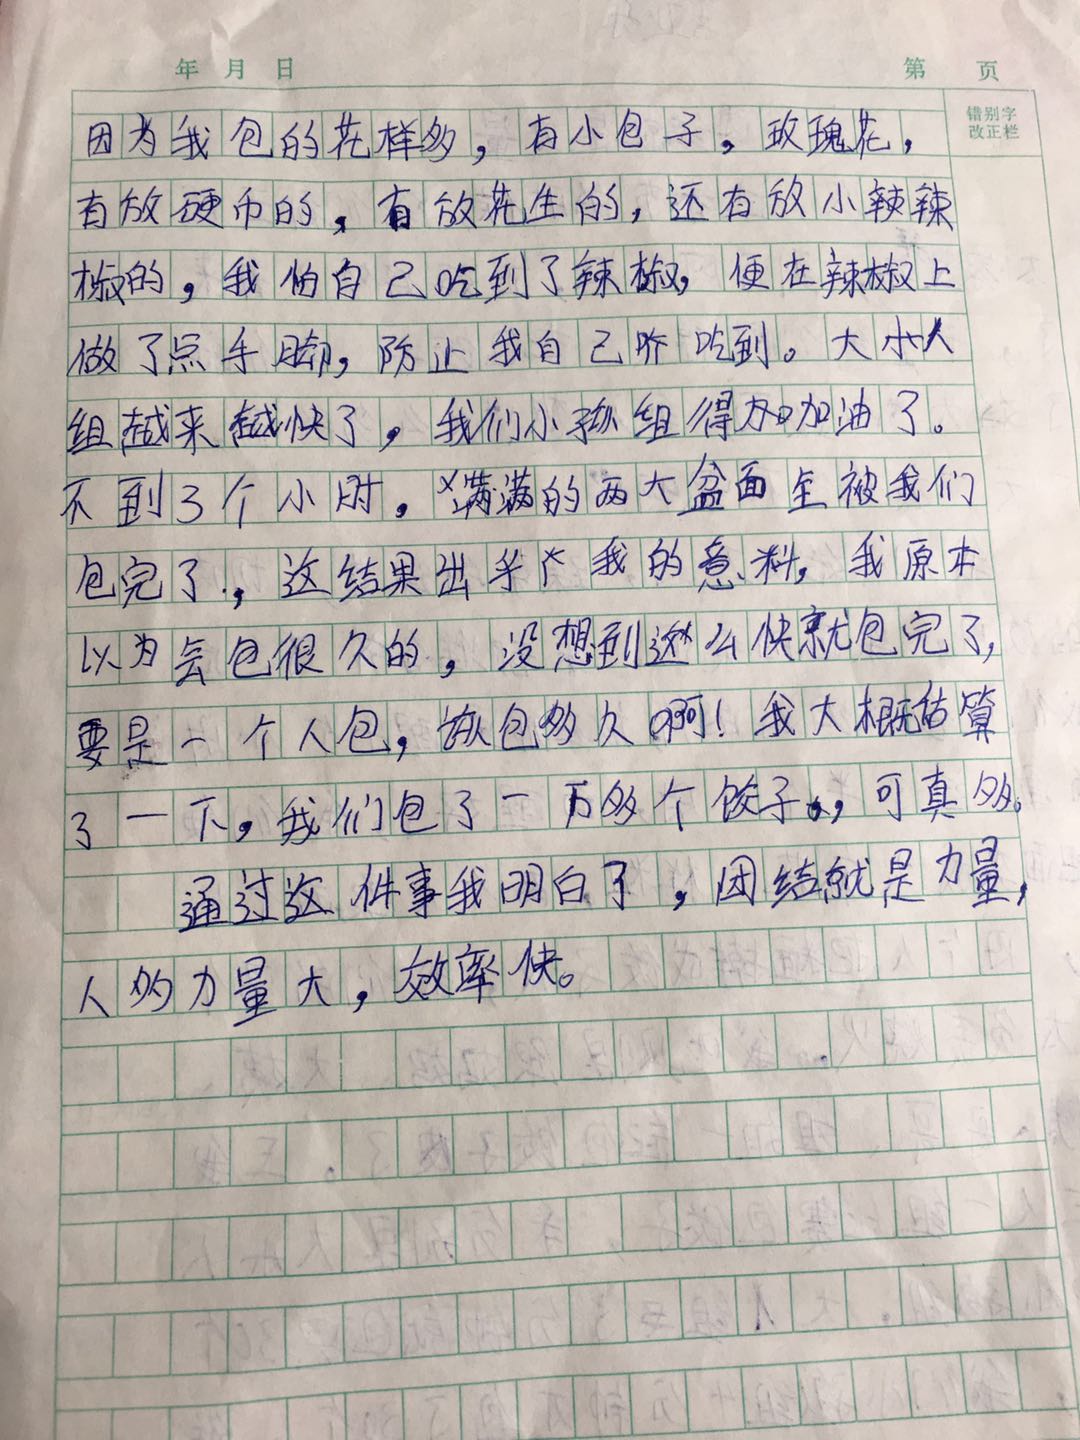 年 月 日
第 页
错别字
改正栏
因为我包的花样多，有小包子，玫瑰花，
有放硬币的，有放花生的，还有放小辣辣
椒的，我怕自己吃到了辣椒，便在辣椒上
做了点手脚，防止我自己吃到。大人
组越来越快了，我们小孩组得加加油了。
不到3个小时，满满的两大盆面全被我们
包完了，这结果出乎我的意料，我原本
以为会包很久的，没想到这么快就包完了，
要是一个人包，该包多久啊！我大概估算
了一下，我们包了一万多个饺子，可真多。
通过这件事我明白了，团结就是力量，
人多力量大，效率快。